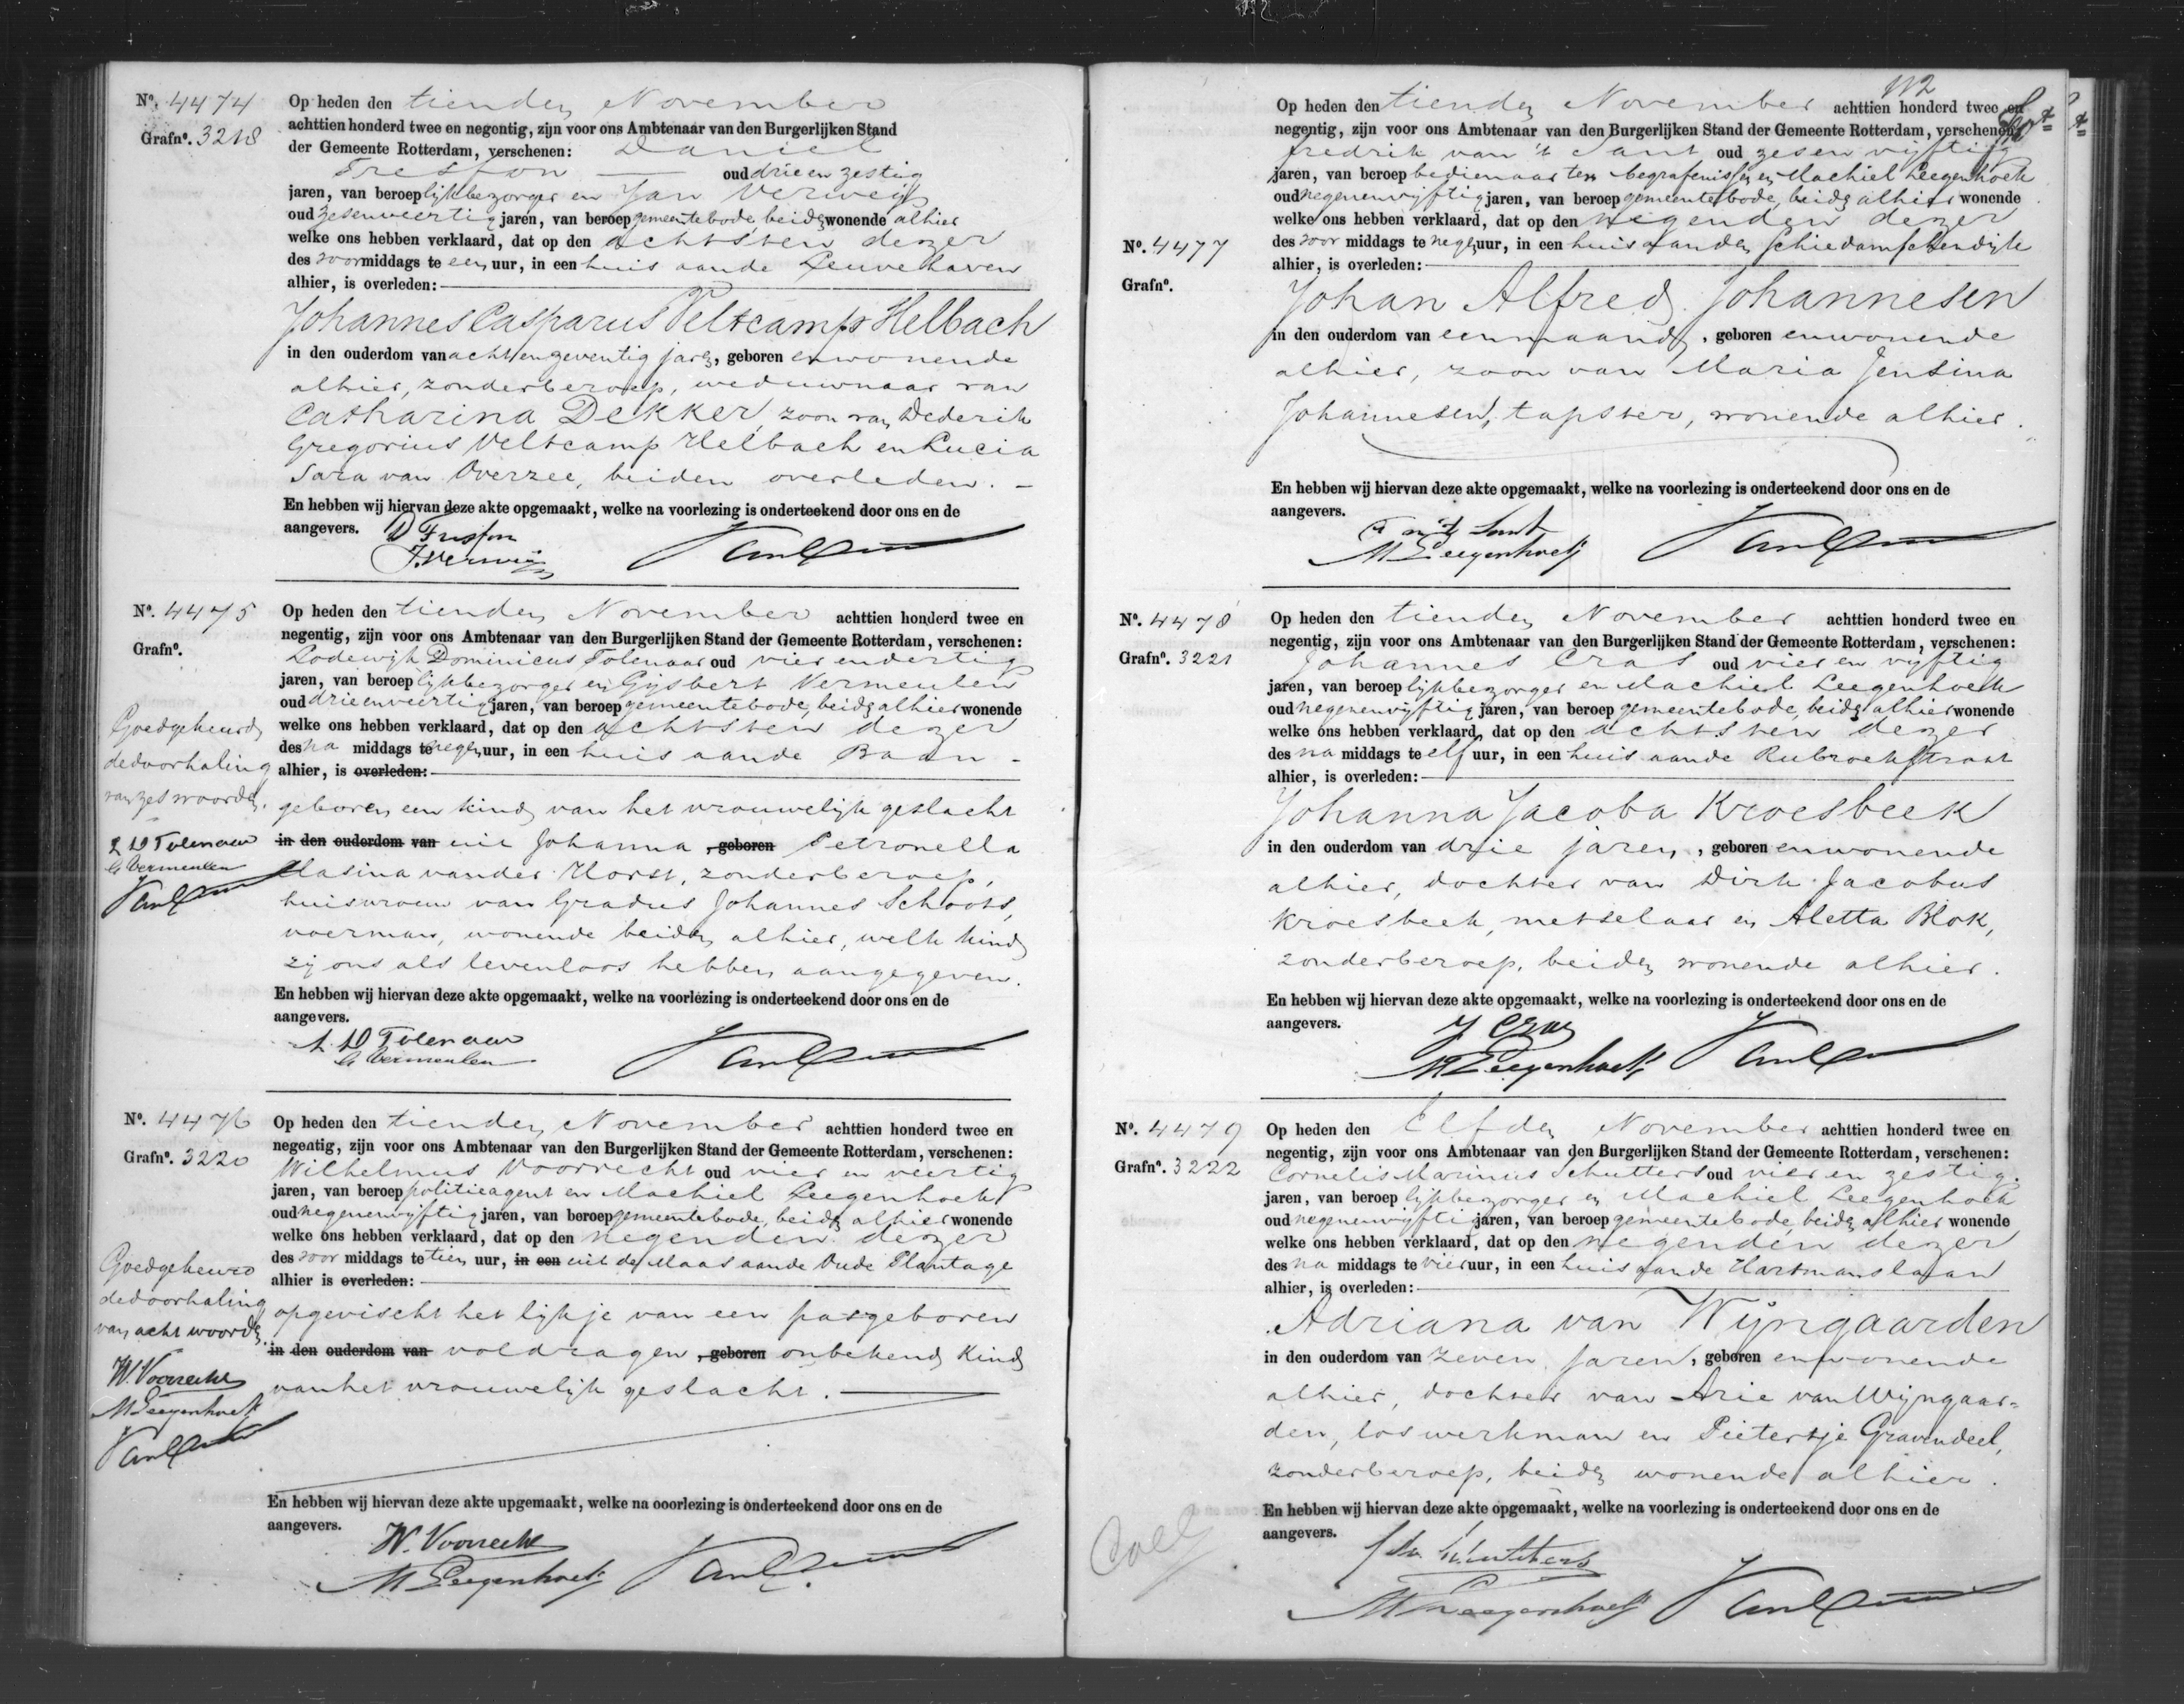 No. 4474
Grafno. 3218
Op heden den tienden November
achttien honderd twee en negentig, zijn voor ons Ambtenaar van den Burgerlijken Stand
der Gemeente Rotterdam, verschenen: Daniel
Tresfon — oud drie en zestig
jaren, van beroep lijkbezorger en Jan Verweij
oud zesenveertig jaren, van beroep gemeentebode, beiden wonende alhier
welke ons hebben verklaard, dat op den achtsten dezer
des voormiddags te een uur, in een huis aan de Leuvehaven
alhier, is overleden:
Johannes Casparus Veltcamp Helbach
in den ouderdom van acht en zeventig jaren, geboren en wonende
alhier, zonder beroep, weduwnaar van
Catharina Dekker, zoon van Dederik
Gregorius Veltcamp Helbach en Lucia
Sara van Overzee, beiden overleden. —
En hebben wij hiervan deze akte opgemaakt, welke na voorlezing is onderteekend door ons en de
aangevers. D Tresfon
J. Verweij
No. 4475
Grafno.
Op heden den tienden November achttien honderd twee en
negentig, zijn voor ons Ambtenaar van den Burgerlijken Stand der Gemeente Rotterdam, verschenen:
Lodewijk Dominicus Tolenaar oud vier en dertig
jaren, van beroep lijkbezorger en Gijsbert Vermeulen
oud drie en veertig jaren, van beroep gemeentebode, beiden alhier wonende
welke ons hebben verklaard, dat op den achtsten dezer
des na middags te negen uur, in een huis aan de Baan -
alhier, is overleden:
geboren een kind van het vrouwelijk geslacht
in den ouderdom van uit Johanna , geboren Petronella
Masina van der Horst, zonder beroep,
huisvrouw van Gradus Johannes Schoots,
voerman, wonende beiden alhier, welk kind
zij ons als levenloos hebben aangegeven.
En hebben wij hiervan deze akte opgemaakt, welke na voorlezing is onderteekend door ons en de
aangevers.
L. D Tolenaar
G Vermeulen
Goedgekeurd
de doorhaling
van zes woorden.
L D Tolenaar
G Vermeulen
No. 4476
Grafno. 3220
Op heden den tienden November achttien honderd twee en
negentig, zijn voor ons Ambtenaar van den Burgerlijken Stand der Gemeente Rotterdam, verschenen:
Wilhelmus Voorrecht oud vier en veertig
jaren, van beroep politieagent en Machiel Leegenhoek
oud negenenvijftig jaren, van beroep gemeentebode, beiden alhier wonende
welke ons hebben verklaard, dat op den negenden dezer
des voor middags te tien uur, in een uit de Maas aan de Oude Plantage
alhier is overleden:
opgevischt het lijkje van een pasgeboren
in den ouderdom van voldragen , geboren onbekend kind
van het vrouwelijk geslacht.
En hebben wij hiervan deze akte upgemaakt, welke na ooorlezing is onderteekend door ons en de
aangevers.
W. Voorrecht
M Leegenhoek
Goedgekeurd
de doorhaling
van acht woorden.
W. Voorrecht
M Leegenhoek
112
No. 4477
Grafno.
Op heden den tienden November achttien honderd twee en
negentig, zijn voor ons Ambtenaar van den Burgerlijken Stand der Gemeente Rotterdam, verschenen:
Fredrik van 't Sant oud zesen vijftig
jaren, van beroep bedienaar ter begrafenissen en Machiel Leegenhoek
oud negenenvijftig jaren, van beroep gemeentebode, beiden alhier wonende
welke ons hebben verklaard, dat op den negenden dezer
des voor middags te negen uur, in een huis aan den Schiedamschendijk
alhier, is overleden:
Johan Alfred Johannesen
in den ouderdom van een maand, geboren en wonende
alhier, zoon van Maria Jensina
Johannesen, tapster, wonende alhier.
En hebben wij hiervan deze akte opgemaakt, welke na voorlezing is onderteekend door ons en de
aangevers.
F v 't Sant
M Leegenhoek
No. 4478
Grafno. 3221
Op heden den tienden November achttien honderd twee en
negentig, zijn voor ons Ambtenaar van den Burgerlijken Stand der Gemeente Rotterdam, verschenen:
Johannes Cras oud vier en vijftig
jaren, van beroep lijkbezorger en Machiel Leegenhoek
oud negenenvijftig jaren, van beroep gemeentebode, beiden alhier wonende
welke ons hebben verklaard, dat op den achtsten dezer
des na middags te elf uur, in een huis aan de Rubroekstraat
alhier, is overleden:
Johanna Jacoba Kroesbeek
in den ouderdom van drie jaren, geboren en wonende
alhier, dochter van Dirk Jacobus
Kroesbeek, metselaar en Aletta Blok,
zonder beroep, beiden wonende alhier.
En hebben wij hiervan deze akte opgemaakt, welke na voorlezing is onderteekend door ons en de
aangevers.
J Cras
M Leegenhoek
No. 4479
Grafno. 3222
Op heden den Elfden November achttien honderd twee en
negentig, zijn voor ons Ambtenaar van den Burgerlijken Stand der Gemeente Rotterdam, verschenen:
Cornelis Marinus Schutters oud vier en zestig
jaren, van beroep lijkbezorger en Machiel Leegenhoek
oud negenenvijftig jaren, van beroep gemeentebode, beiden alhier wonende
welke ons hebben verklaard, dat op den negenden dezer
des na middags te vier uur, in een huis aan de Hartmanslaan
alhier, is overleden:
Adriana van Wijngaarden
in den ouderdom van zeven jaren, geboren en wonende
alhier, dochter van Arie van Wijngaar=
den, los werkman en Pietertje Gravendeel,
zonder beroep, beiden wonende alhier.
En hebben wij hiervan deze akte opgemaakt, welke na voorlezing is onderteekend door ons en de
aangevers.
Schutters
M Leegenhoek